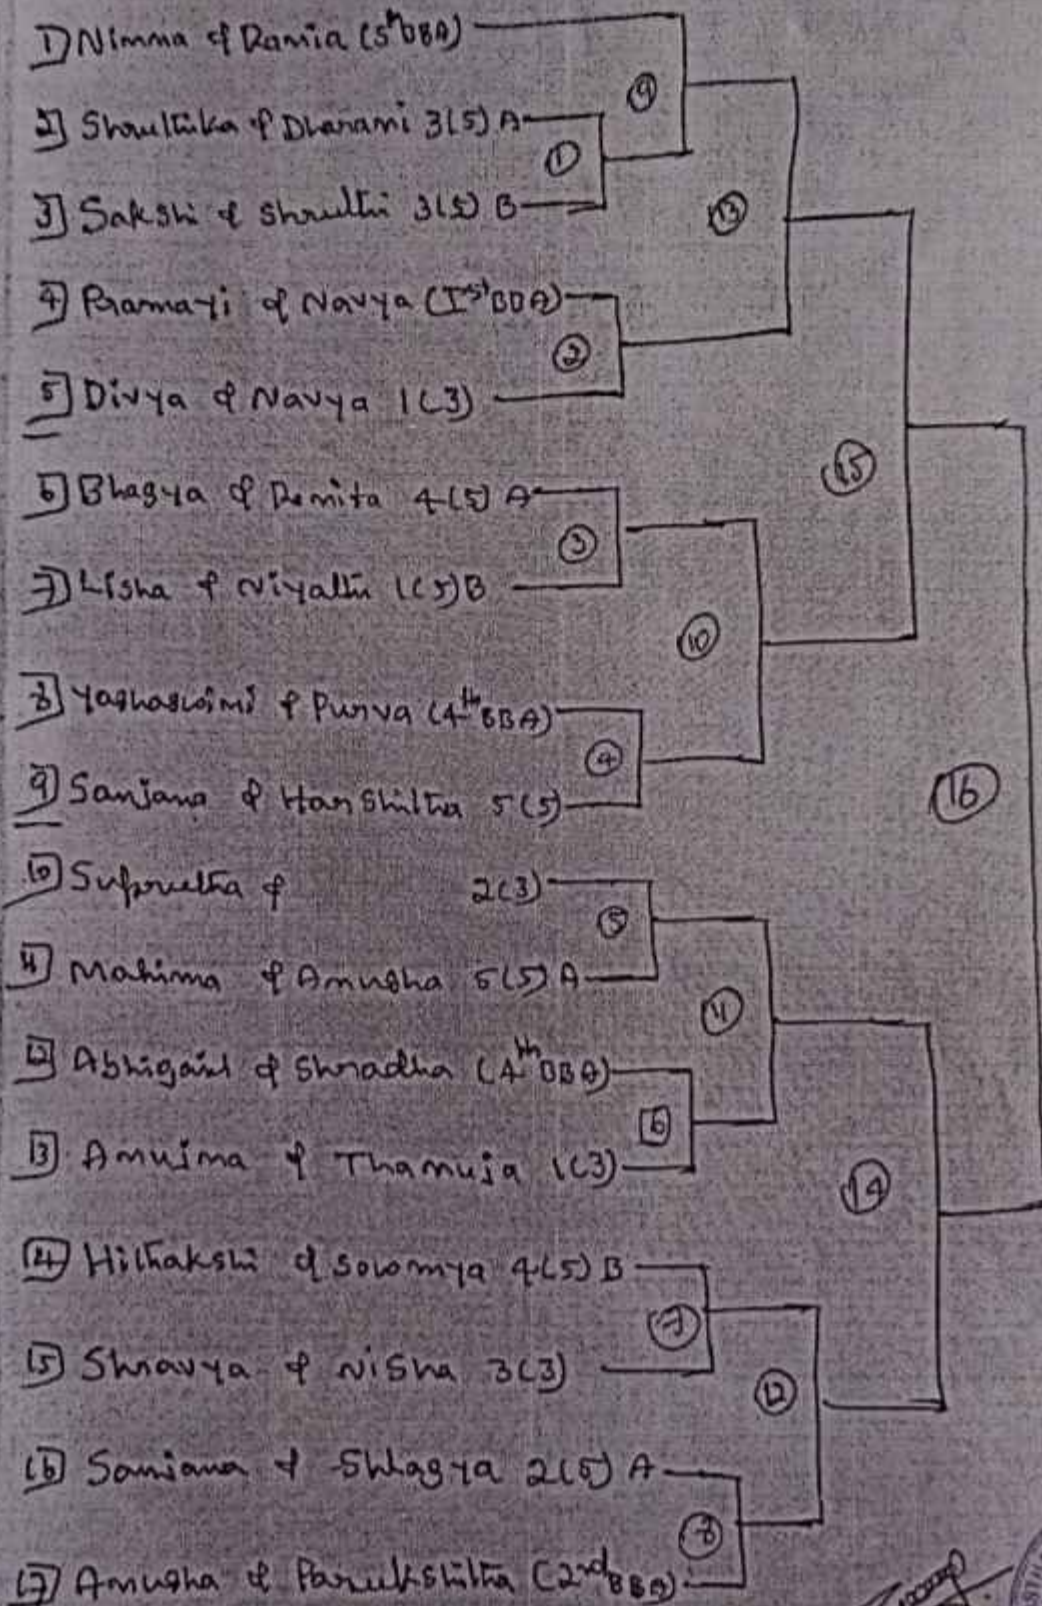 1) Nimma & Ramia (5th BBA)
2] Shruthika & Dharami 3(5) A
3] Sakshi & Shruthi 3(5) B
4] Pramayi & Navya (Ist BBA)
5] Divya & Navya 1(3)
6] Bhagya & Demita 4(5) A
7] Lisha & Niyathi 1(5) B
8] Yashaswimi & Purva (4th BBA)
9] Sanjana & Harshitha 5(5)
10] Supruetha & 2(3)
11] Mahima & Anusha 5(5) A
12] Abhigail & Shradha (4th BBA)
13] Anujna & Thanuja 1(3)
14] Hithakshi & Sowmya 4(5) B
15] Shravya & Nisha 3(3)
16] Sanjana & Shlagya 2(5) A
17] Anusha & Parukshitha (2nd BBA)
9
1
13
2
15
3
10
4
16
5
11
6
14
7
12
8